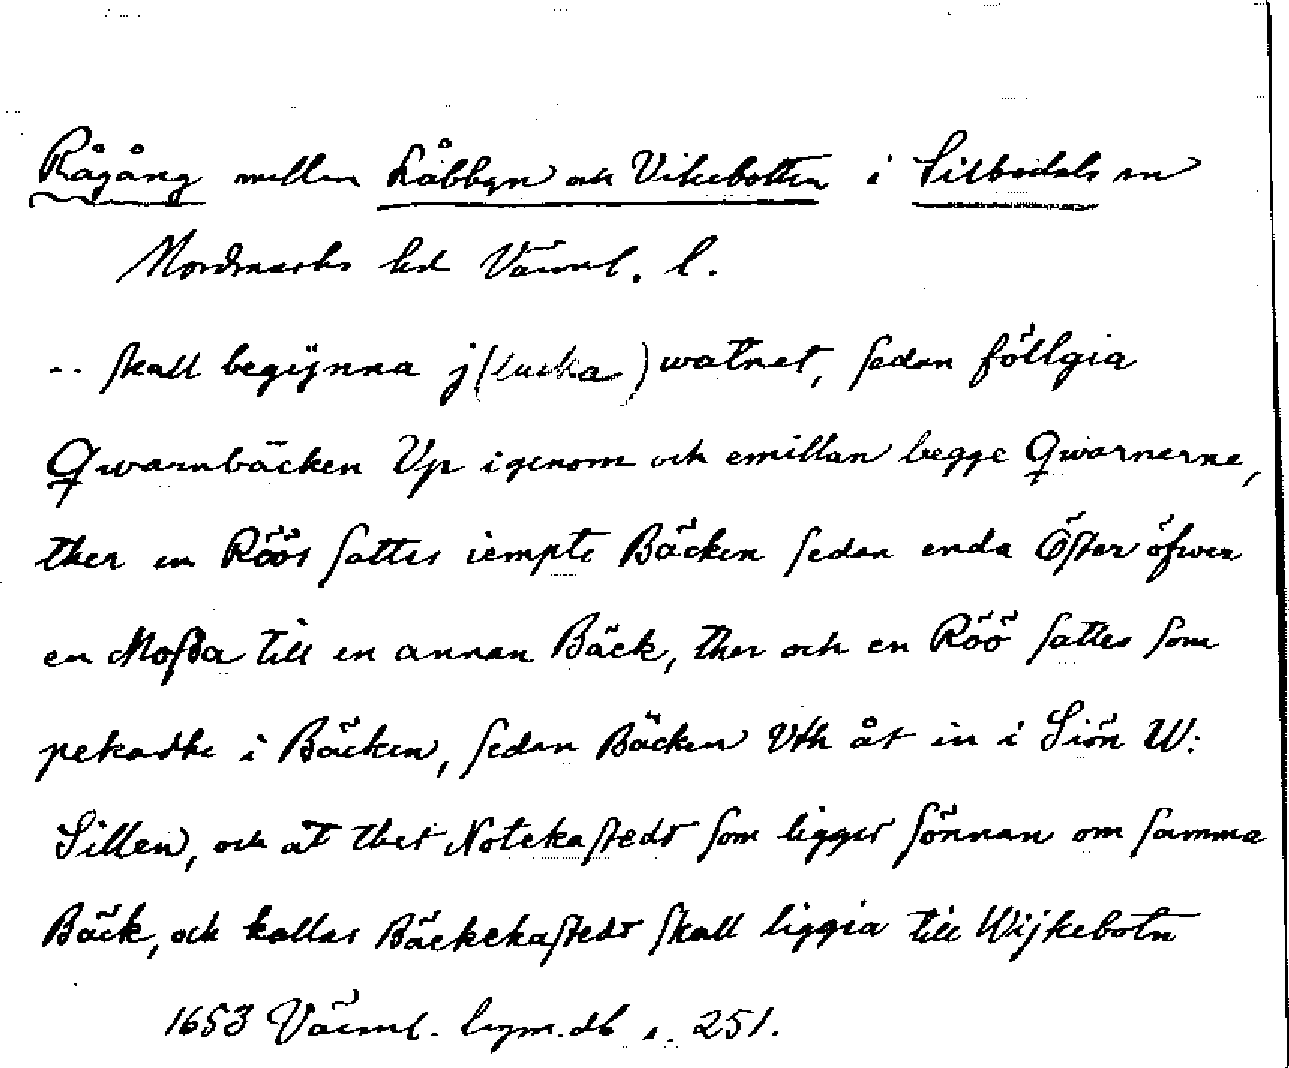 Rågång mellan Råbbyn och Vikebotten i Silbodals sn
Nordmarks hd Värml. l.
.. skall begijnna j (lucka) watnet, sedan föllgia
Qwarnbäcken Up igenom och emillan begge Qwarnerne,
ther en Röös sattes iempte Bäcken sedan enda Öster öfwer
en Mossa till en annan Bäck, ther och en Röö sattes som
pekadhe i Bäcken, sedan Bäcken Vth åt in i Siön W:
Sillen, och åt thet Notekastedt som ligger sönnan om samma
Bäck, och kallas Bäckekastedt skall liggia till Wijkebotn
1653 Värml. lagm.db s. 251.